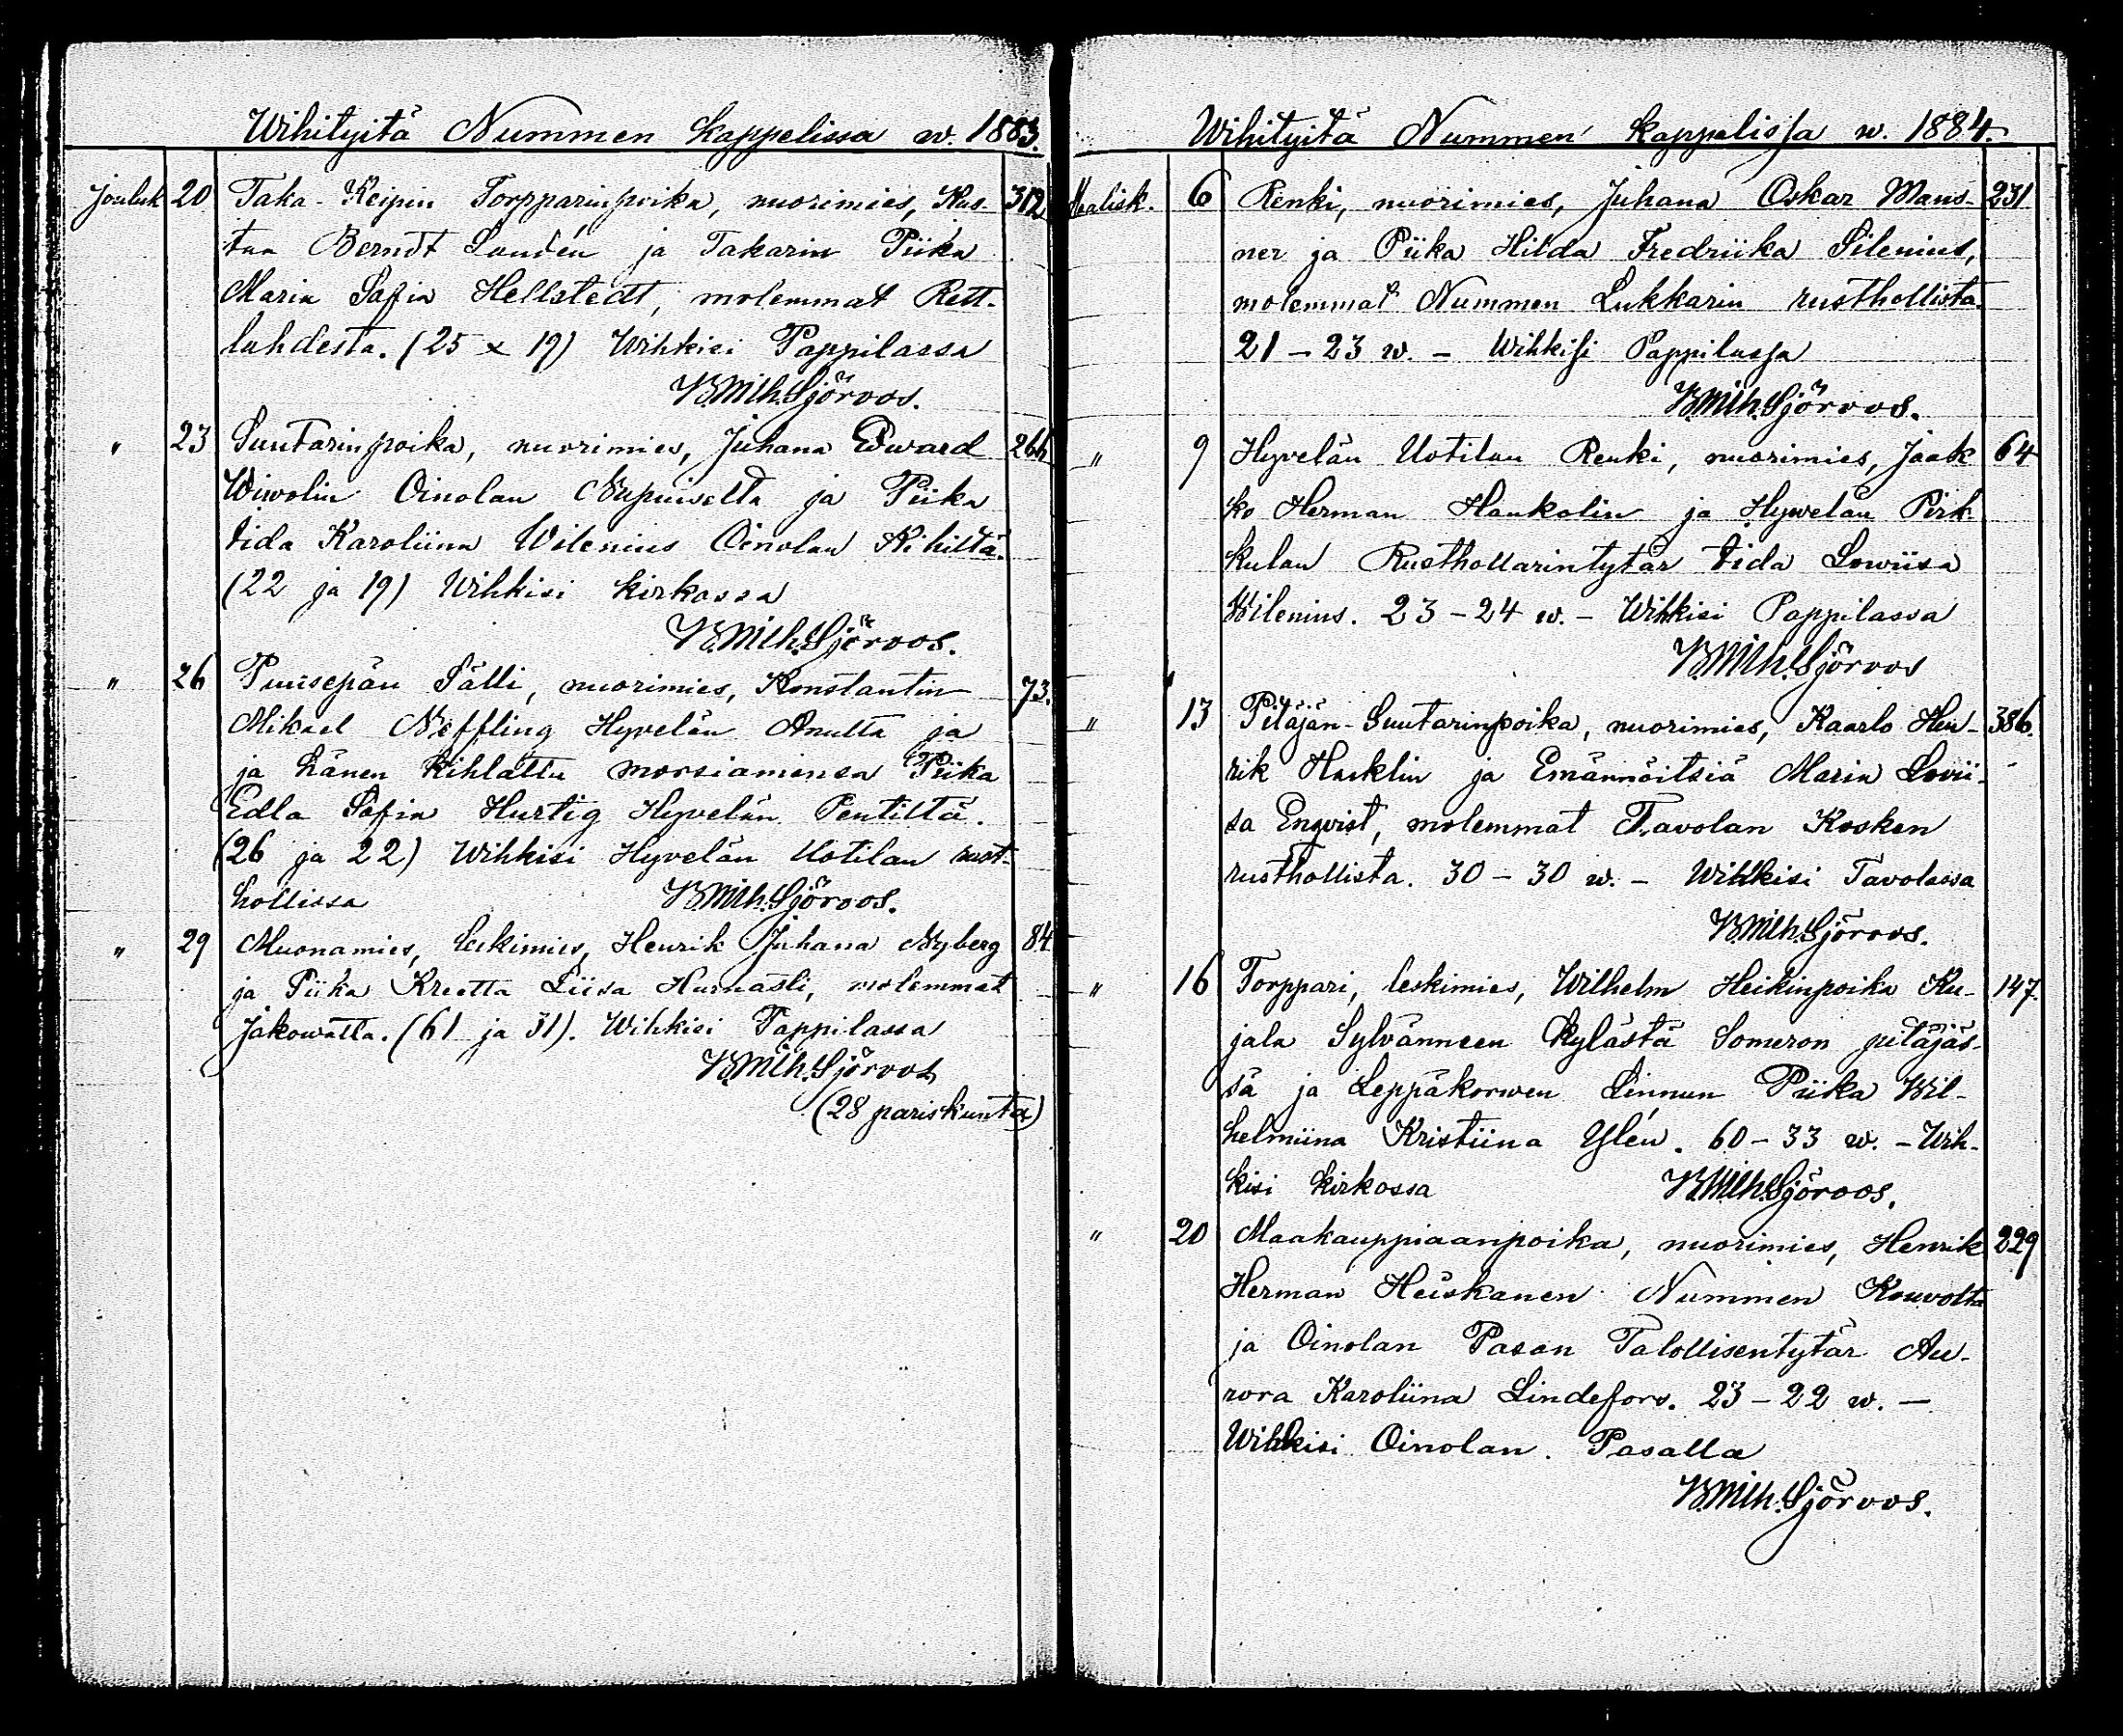 Wihityitä Nummen kappelissa w. 1883.
Jouluk 20 Taka-Keipin Torpparinpoika, nuorimies, Kus- 312
taa Berndt Londén ja Takarin Piika
Maria Sofia Hellstedt, molemmat Rett-
lahdesta. (25 x 19) Wihkisi Pappilassa
Wilh. Sjöroos.
" 23 Suutarinpoika, nuorimies, Juhana Edward 266
Wiwolin Oinolan ja Piika
Iida Karoliina Wilenius Oinolan
(22 ja 19) Wihkisi kirkossa
Wilh. Sjöroos.
" 26 Puusepän Sälli, nuorimies, Konstantin 73.
Mikael Neffling Hyvelän Anulta ja
ja hänen kihlattu morsiamensa Piika
Edla Sofia Hurtig Hyvelän Pentiltä.
(26 ja 22) Wihkisi Hyvelän Uotilan rust-
hollissa Wilh. Sjöroos.
" 29 Muonamies, leskimies, Henrik Juhana Nyberg 84
ja Piika Kreetta Liisa Hurnasti, molemmat
Jakowalta. (61 ja 31). Wihkisi Pappilassa
Wilh. Sjöroos
(28 pariskunta)
Wihityitä Nummen kappelissa w. 1884.
Maalisk. 6 Renki, nuorimies, Juhana Oskar Mans- 231
ner ja Piika Hilda Fredriika Silenius,
molemmat Nummen Lukkarin rusthollista.
21 - 23 w. - Wihkisi Pappilassa
Wilh. Sjöroos.
" 9 Hyvelän Uotilan Renki, nuorimies, Jaak 64
ko Herman Haukolin ja Hywelän Pirk
kulan Rusthollarintytär Iida Lowiisa
Wilenius. 23 - 24 w. - Wihkisi Pappilassa
Wilh. Sjöroos
" 13 Pitäjän-Suutarinpoika, nuorimies, Kaarlo Hen- 386.
rik Hacklin ja Emännöitsiä Maria Lovii-
sa Enqvist, molemmat Tavolan Kosken
rusthollista. 30 - 30 w. - Wihkisi Tavolassa
Wilh. Sjöroos.
" 16 Torppari, leskimies, Wilhelm Heikinpoika Ku- 147.
jala Sylvänneen kylästä Someron pitäjäs-
sä ja Leppäkorwen Linnun Piika Wil-
helmiina Kristiina Ylén. 60 - 33 w. - Wih-
kisi kirkossa Wilh. Sjöroos.
" 20 Maakauppiaanpoika, nuorimies, Henrik 229
Herman Heiskanen Nummen Kouvolta
ja Oinolan Pasan Talollisentytär Au-
rora Karoliina Lindefors. 23 - 22 w. -
Wihkisi Oinolan. Pasalla
Wilh. Sjöroos.